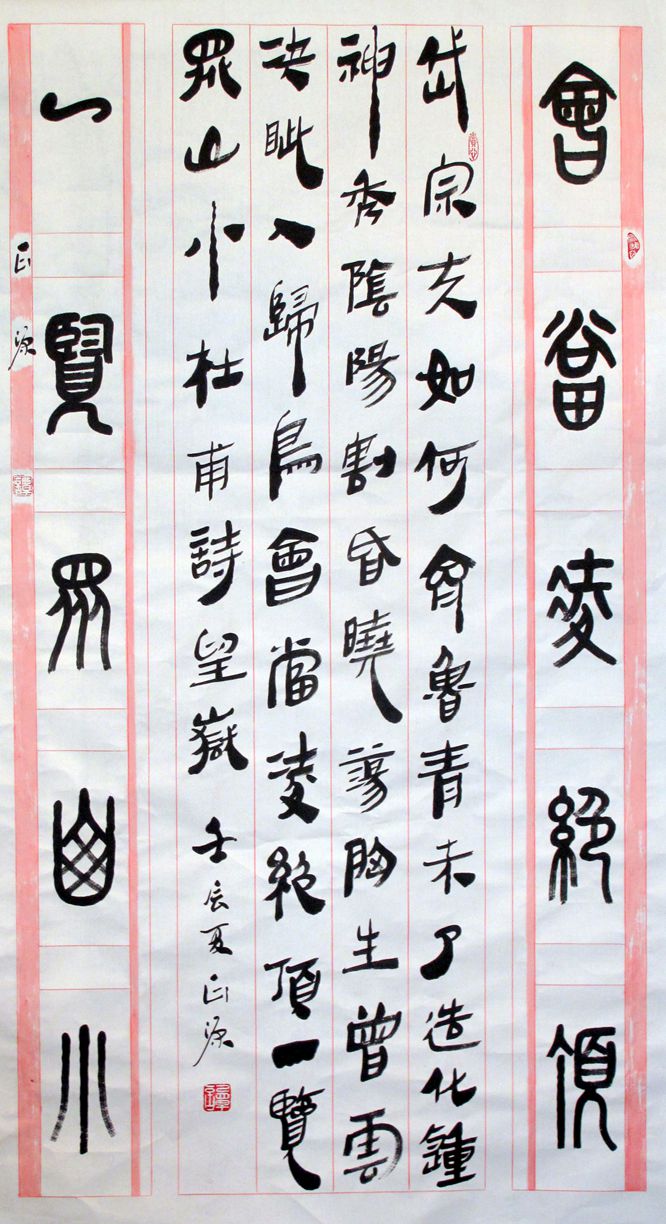 會當凌絕頂
岱宗夫如何齊魯青未了造化鍾
神秀陰陽割昏曉蕩胸生曾雲
決眦入歸鳥會當凌絕頂一覽
眾山小杜甫詩望嶽 壬辰夏正源
一覽眾山小
正源